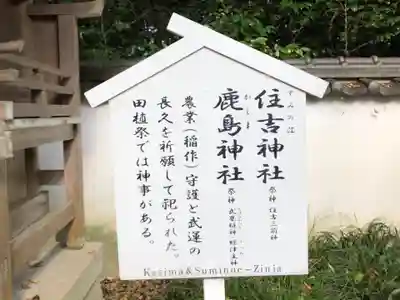 すみのえ
住吉神社
祭神 住吉三前神
かしま
鹿島神社
祭神 武甕槌神 経津主神
農業(稲作)守護と武運の
長久を祈願して祀られた。
田植祭では神事がある。
Kasima&Suminoe-Zinja